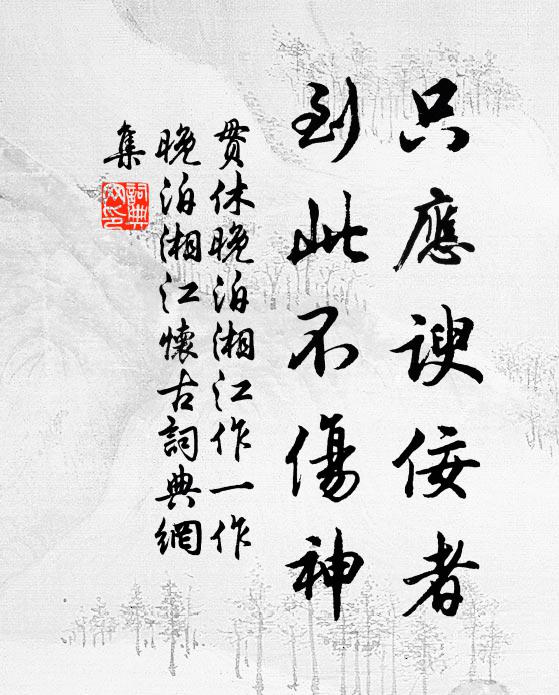 只應諛佞者
到此不傷神
貫休晚泊湘江作一作
晚泊湘江懷古詞典網
集
詞典
网印